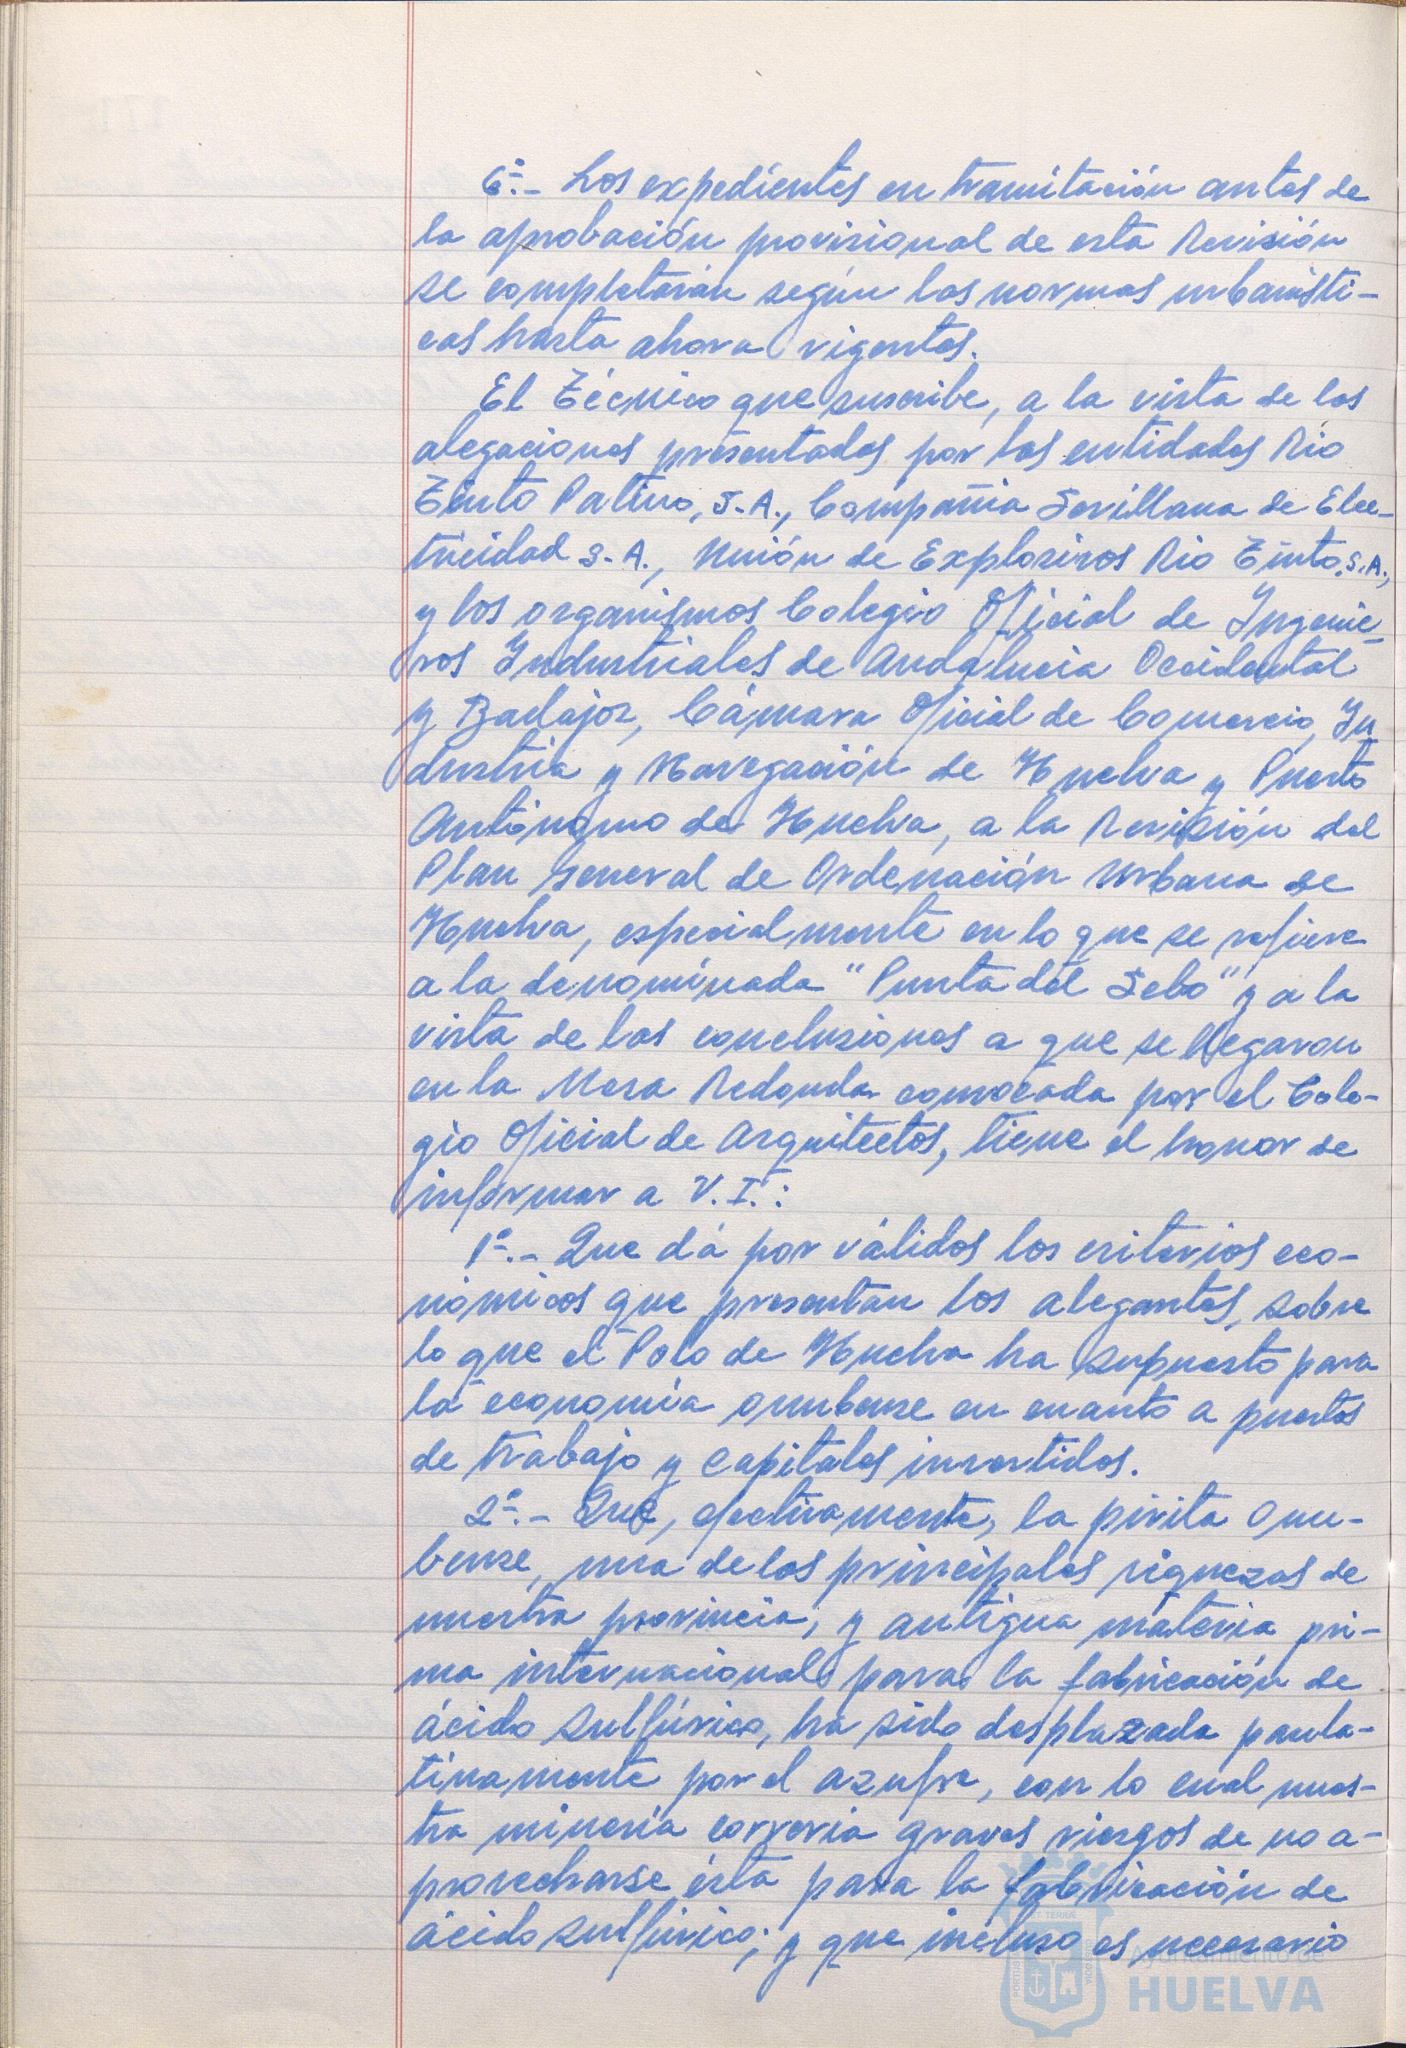 6º.- Los expedientes en tramitación antes de
la aprobación provisional de esta Revisión
se completarán según las normas urbanísti-
cas hasta ahora vigentes.
El Técnico que suscribe, a la vista de las
alegaciones presentadas por las entidades Rio
Tinto Patiño, S.A., Compañía Sevillana de Elec-
tricidad S.A., Unión de Explosivos Rio Tinto, S.A.,
y los organismos Colegio Oficial de Ingenie-
ros Industriales de Andalucia Occidental
y Badajoz, Cámara Oficial de Comercio, In
dustria y Navegación de Huelva y Puerto
Autónomo de Huelva, a la Revisión del
Plan General de Ordenación Urbana de
Huelva, especialmente en lo que se refiere
a la denominada "Punta del Sebo" y a la
vista de las conclusiones a que se llegaron
en la Mesa Redonda convocada por el Cole-
gio Oficial de Arquitectos, tiene el honor de
informar a V.I.:
1º.- Que dá por válidos los criterios eco-
nómicos que presentan los alegantes, sobre
lo que el Polo de Huelva ha supuesto para
la economía onubense en cuanto a puestos
de trabajo y capitales invertidos.
2º.- Que, efectivamente, la pirita onu-
bense, una de las principales riquezas de
nuestra provincia, y antigua materia pri-
ma internacional para la fabricación de
ácido sulfúrico, ha sido desplazada paula-
tinamente por el azufre, con lo cual nues-
tra minería correria graves riesgos de no a-
provecharse ésta para la fabricación de
ácido sulfúrico; y que incluso es necesario
Ayuntamiento de
HUELVA